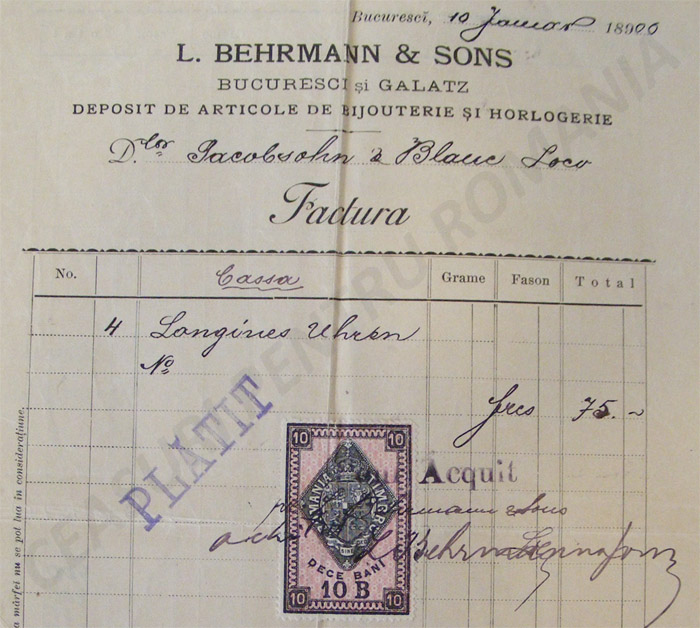 Bucuresci, 10 Januar 18900
L. BEHRMANN & SONS
BUCURESCI și GALATZ
DEPOSIT DE ARTICOLE DE BIJOUTERIE ȘI HORLOGERIE
D.lor Jacobsohn & Blanc Loco
Factura
No. Cassa Grame Fason Total
4 Longines Uhren
No
frcs 75.-
PLĂTIT
10 10
ROMANIA TIMBRU
DECE BANI
10 10 B 10
Acquit
Behrmann & Sons
L. Behrmann & Sons
a mărfei nu se pot lua în considerațiune.
CEASURI PENTRU ROMANIA